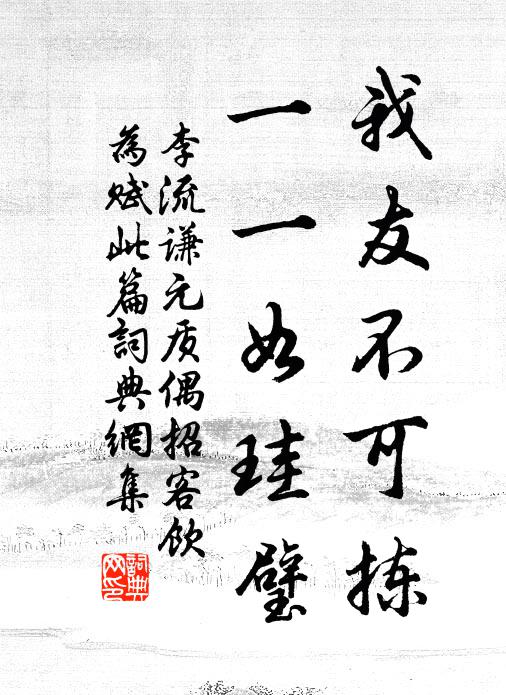 我友不可拣
一一如珪璧
李流谦元质偶招客饮
為赋此篇詞典網集
詞典网印